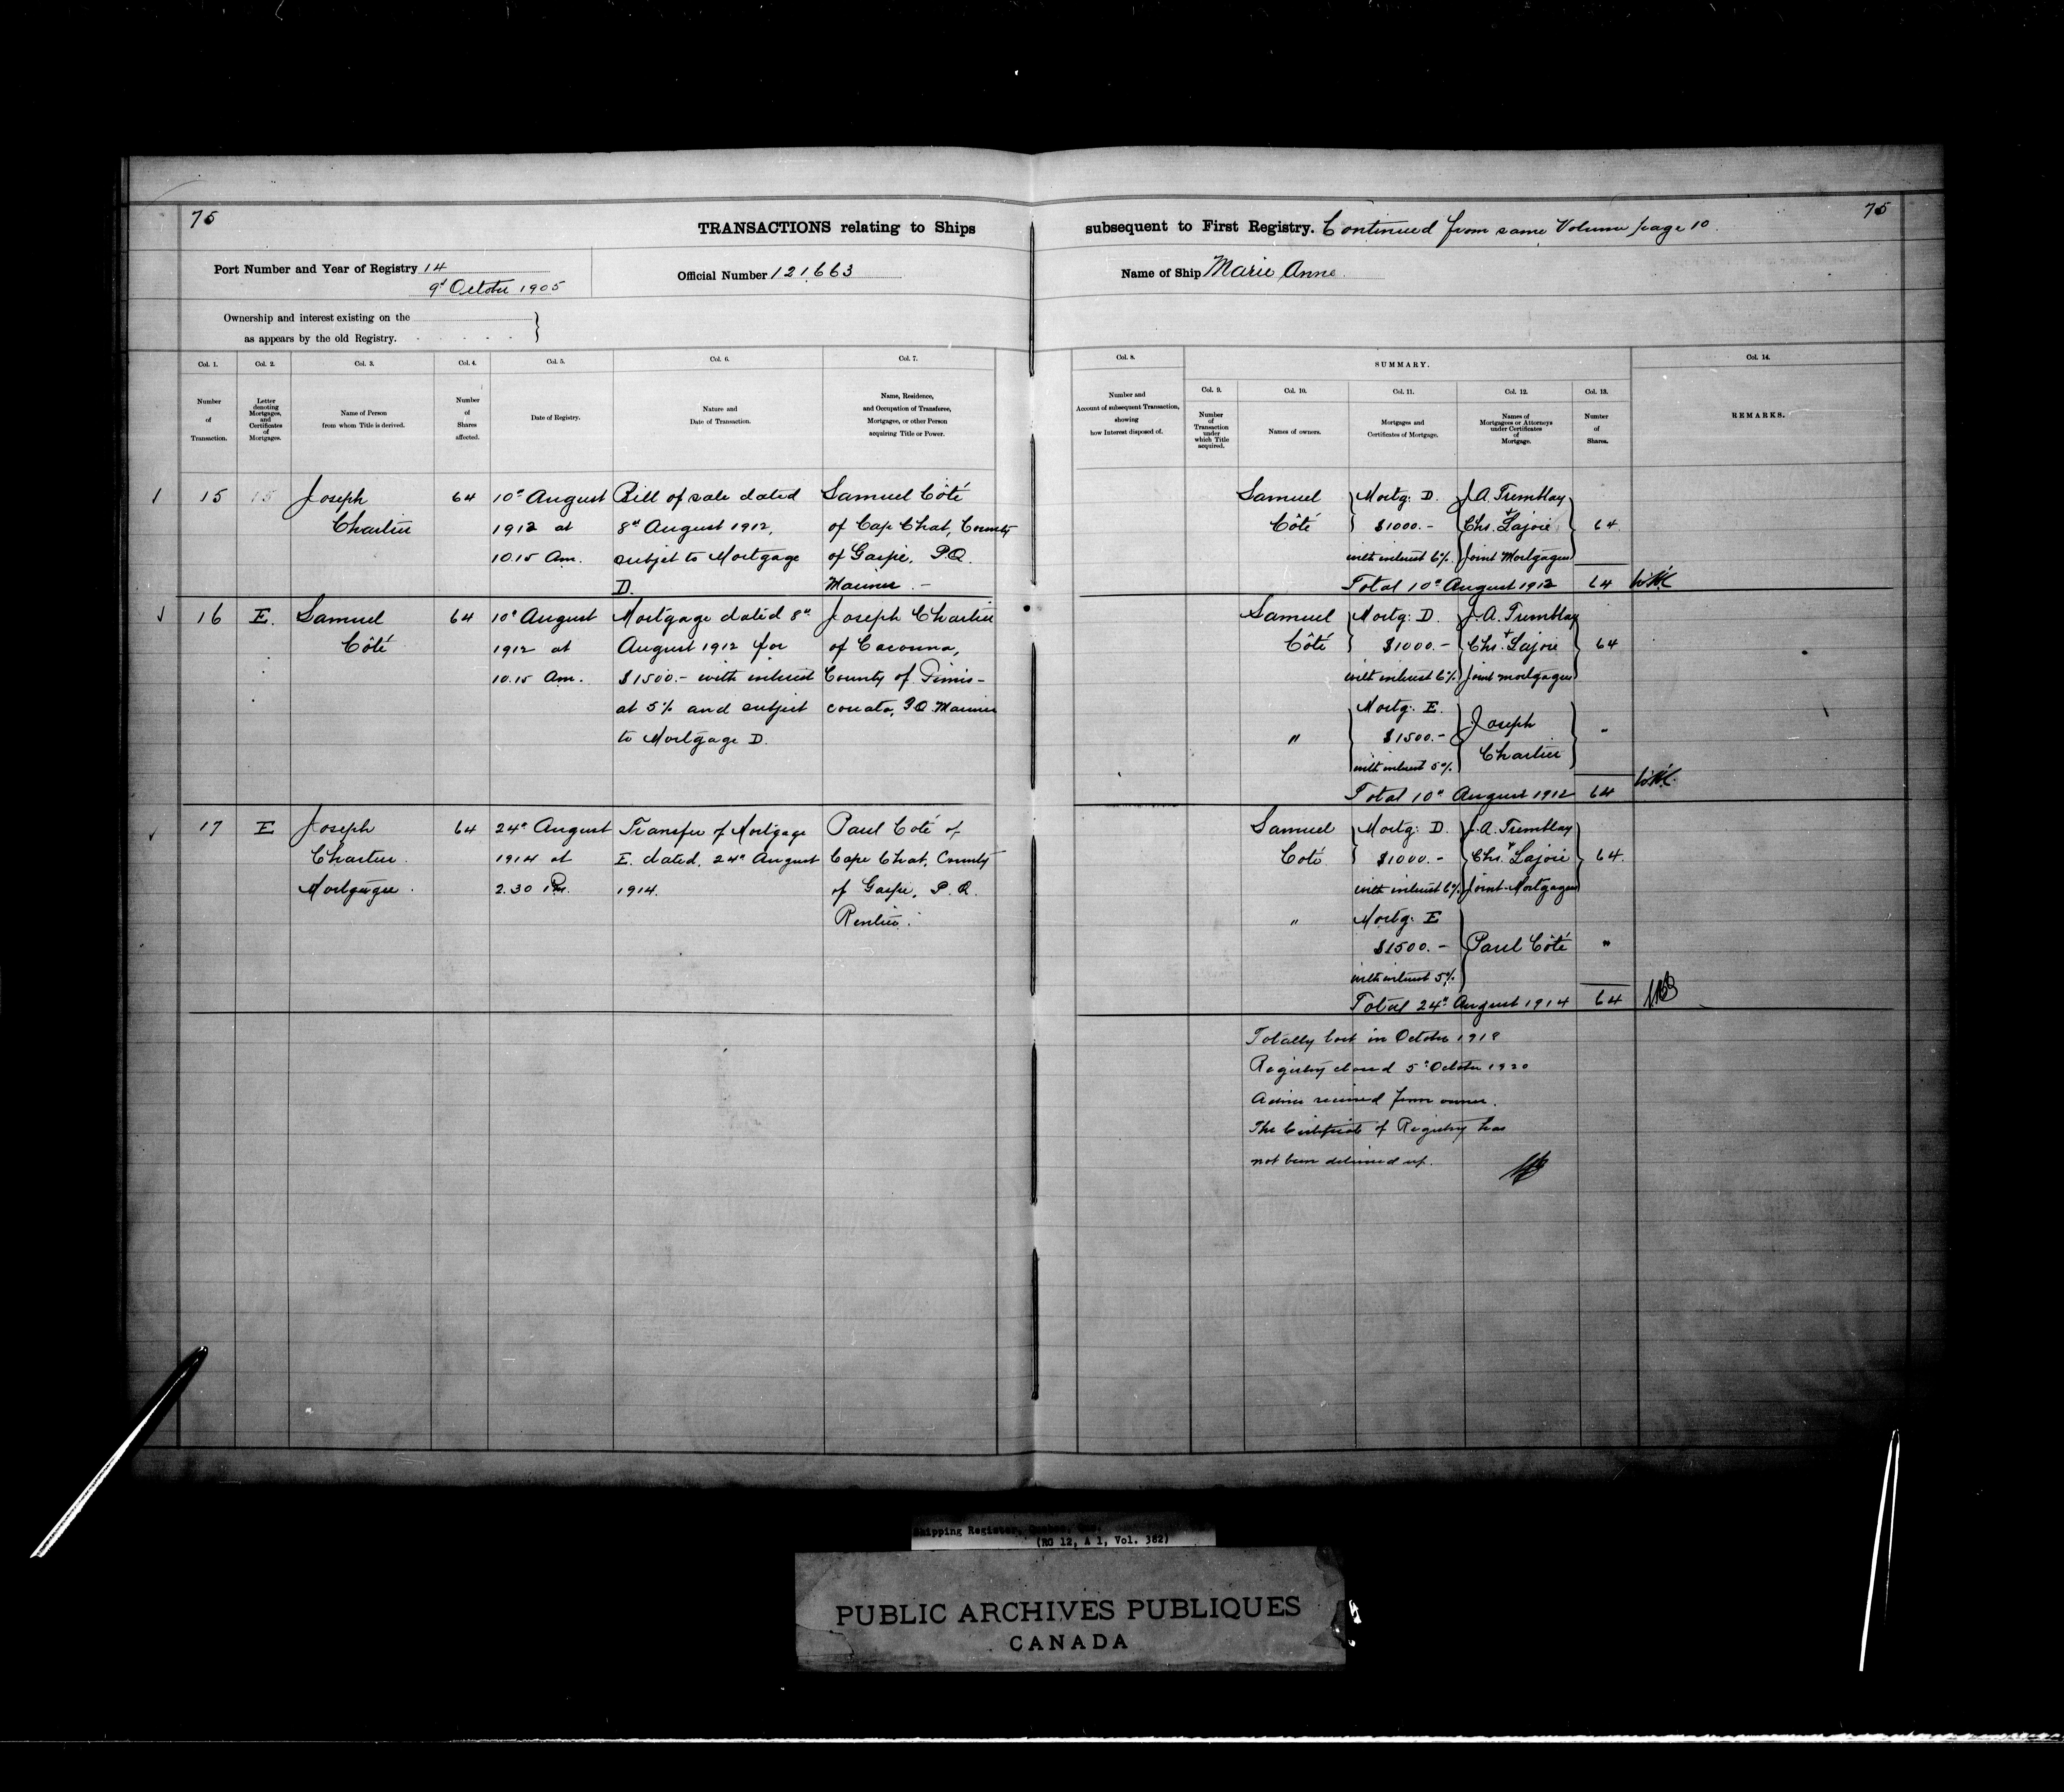 75
75
TRANSACTIONS relating to Ships subsequent to First Registry. Continued from same Volume page 10.
Port Number and Year of Registry 14
9th October 1905
Official Number 121663
Name of Ship Marie Anne
Ownership and interest existing on the
as appears by the old Registry.
Col. 1.
Number
of
Transaction.
Col. 2.
Letter
denoting
Mortgages,
and
Certificates
of
Mortgages.
Col. 3.
Name of Person
from whom Title is derived.
Col. 4.
Number
of
Shares
affected.
Col. 5.
Date of Registry.
Col. 6.
Nature and
Date of Transaction.
Col. 7.
Name, Residence,
and Occupation of Transferee,
Mortgagee, or other Person
acquiring Title or Power.
Col. 8.
Number and
Account of subsequent Transaction,
showing
how Interest disposed of.
SUMMARY.
Col. 9.
Number
of
Transaction
under
which Title
acquired.
Col. 10.
Names of owners.
Col. 11.
Mortgages and
Certificates of Mortgage.
Col. 12.
Names of
Mortgagees or Attorneys
under Certificates
of
Mortgage.
Col. 13.
Number
of
Shares.
Col. 14.
REMARKS.
15
15
Joseph
Chartier
64
10th August
1912 at
10.15 Am.
Bill of sale dated
8th August 1912,
subjet to Mortgage
D.
Samuel Côté
of Cap Chat, County
of Gaspe, P.Q.
Mariner. -
Samuel
Côté
Mortg: D.
$1000.-
with interest 6%
J.A. Tremblay
+
Chs. Lajoie
Joint Mortgagees
64.
Total 10th August 1912 64
16
E.
Samuel
Côté
64
10th August
1912 at
10.15 Am.
Mortgage dated 8th
August 1912 for
$1500.- with interest
at 5% and subject
to Mortgage D.
Joseph Chartier
of Cacouna,
County of Timis-
couata, P.Q. Mariner
Samuel
Côté
Mortg: D.
$1000.-
with interest 6%
J.A. Tremblay
+
Chs. Lajoie
Joint mortgagees
64
"
Mortg: E.
$1500.-
with interest 5%
Joseph
Chartier
"
Total 10th August 1912 64
17
E
Joseph
Chartier.
Mortgagee.
64
24th August
1914 at
2.30 Pm.
Transfer of Mortgage
E. dated, 24th August
1914.
Paul Coté of
Cape Chat, County
of Gaspe, P.Q.
Rentier.
Samuel
Coté
Mortg: D.
$1000.-
with interest 6%
J.A. Tremblay
+
Chs. Lajoie
Joint-Mortgagees
64.
"
Mortg: E
$1500.-
with interest 5%
Paul Côté
"
Total 24th August 1914 64
Totally lost in October 1918
Registry closed 5th October 1920
Advice received from owner.
The Certificate of Registry has
not been delivered up.
Shipping Register, Quebec, Que.
(RG 12, A 1, Vol. 382)
PUBLIC ARCHIVES PUBLIQUES
CANADA